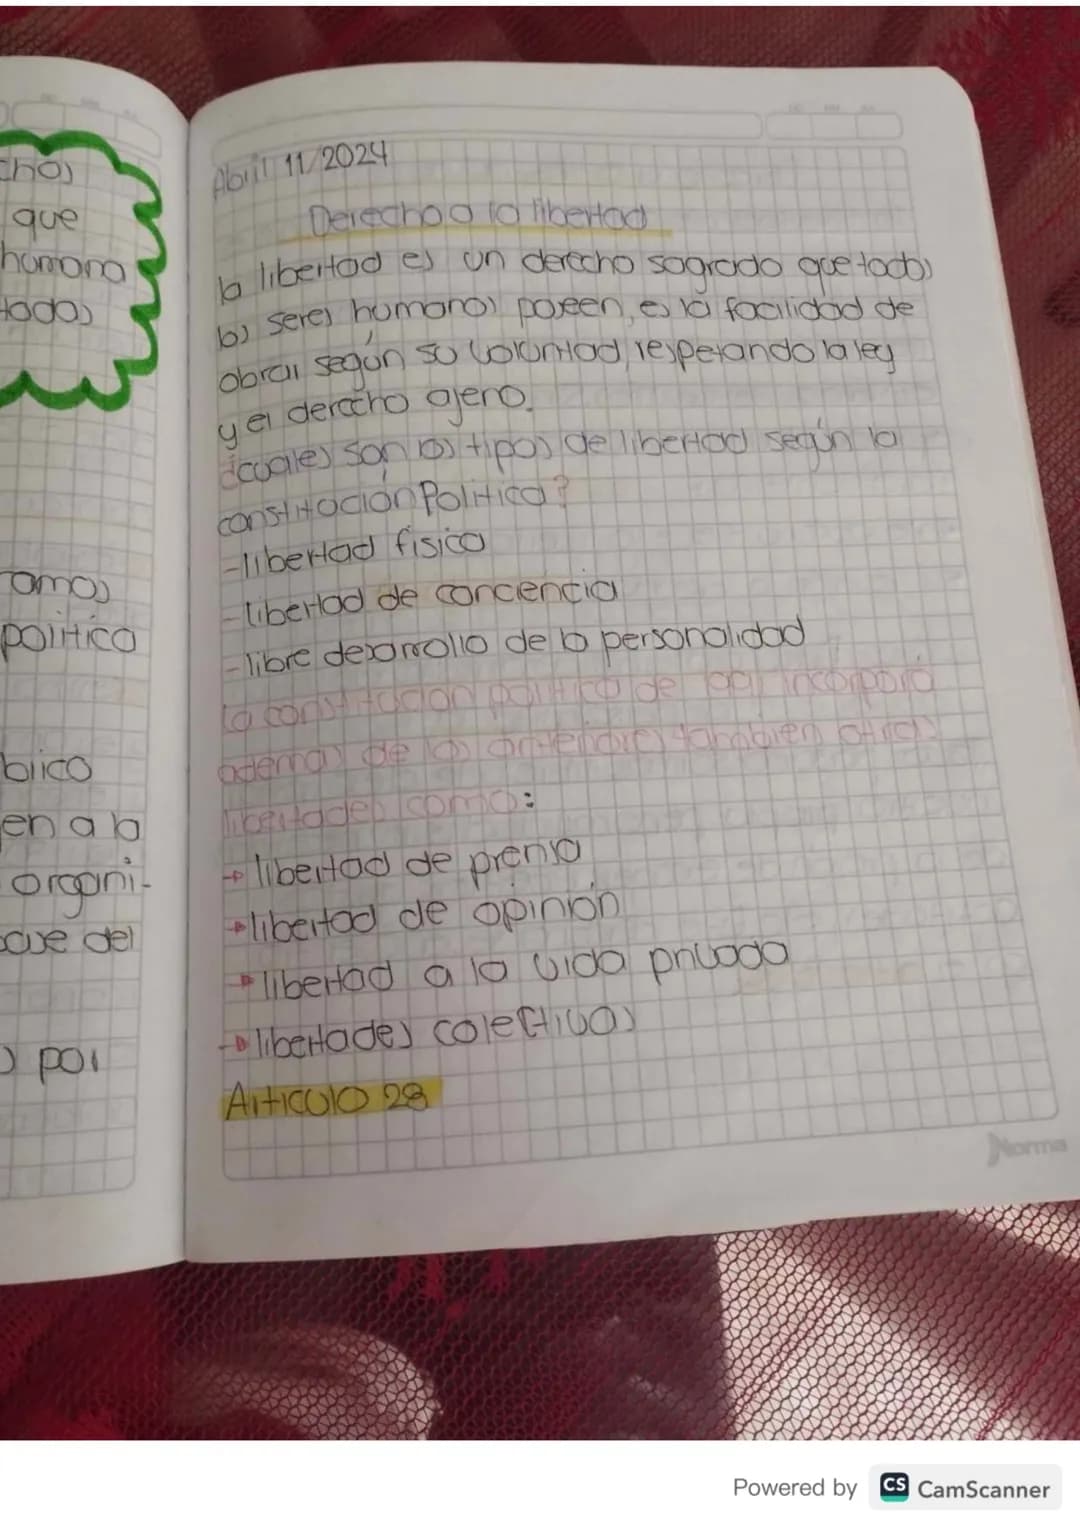 chos
que
humana
todas
ramas
politico
blico
en a la
organi-
ave del
s por
Abril 11/2024
Derecho a la libertad
la libertad es un derecho sagrado que todos
los seres humanos poseen, es la facilidad de
obrar según su voluntad, respetando la ley
y el derecho ajeno.
¿cuales son los tipos de libertad según la
constitución Politica?
-libertad fisica
-libertad de conciencia
-libre desarrollo de la personalidad
la constitucion politica de 1991 incorporó
ademas de las anteriores tambien otras
libertades como:
→ libertad de prensa
→ libertad de opinión
→ libertad a la vida privada
→ libertades colectivas
Articulo 28
Norma
Powered by CS CamScanner